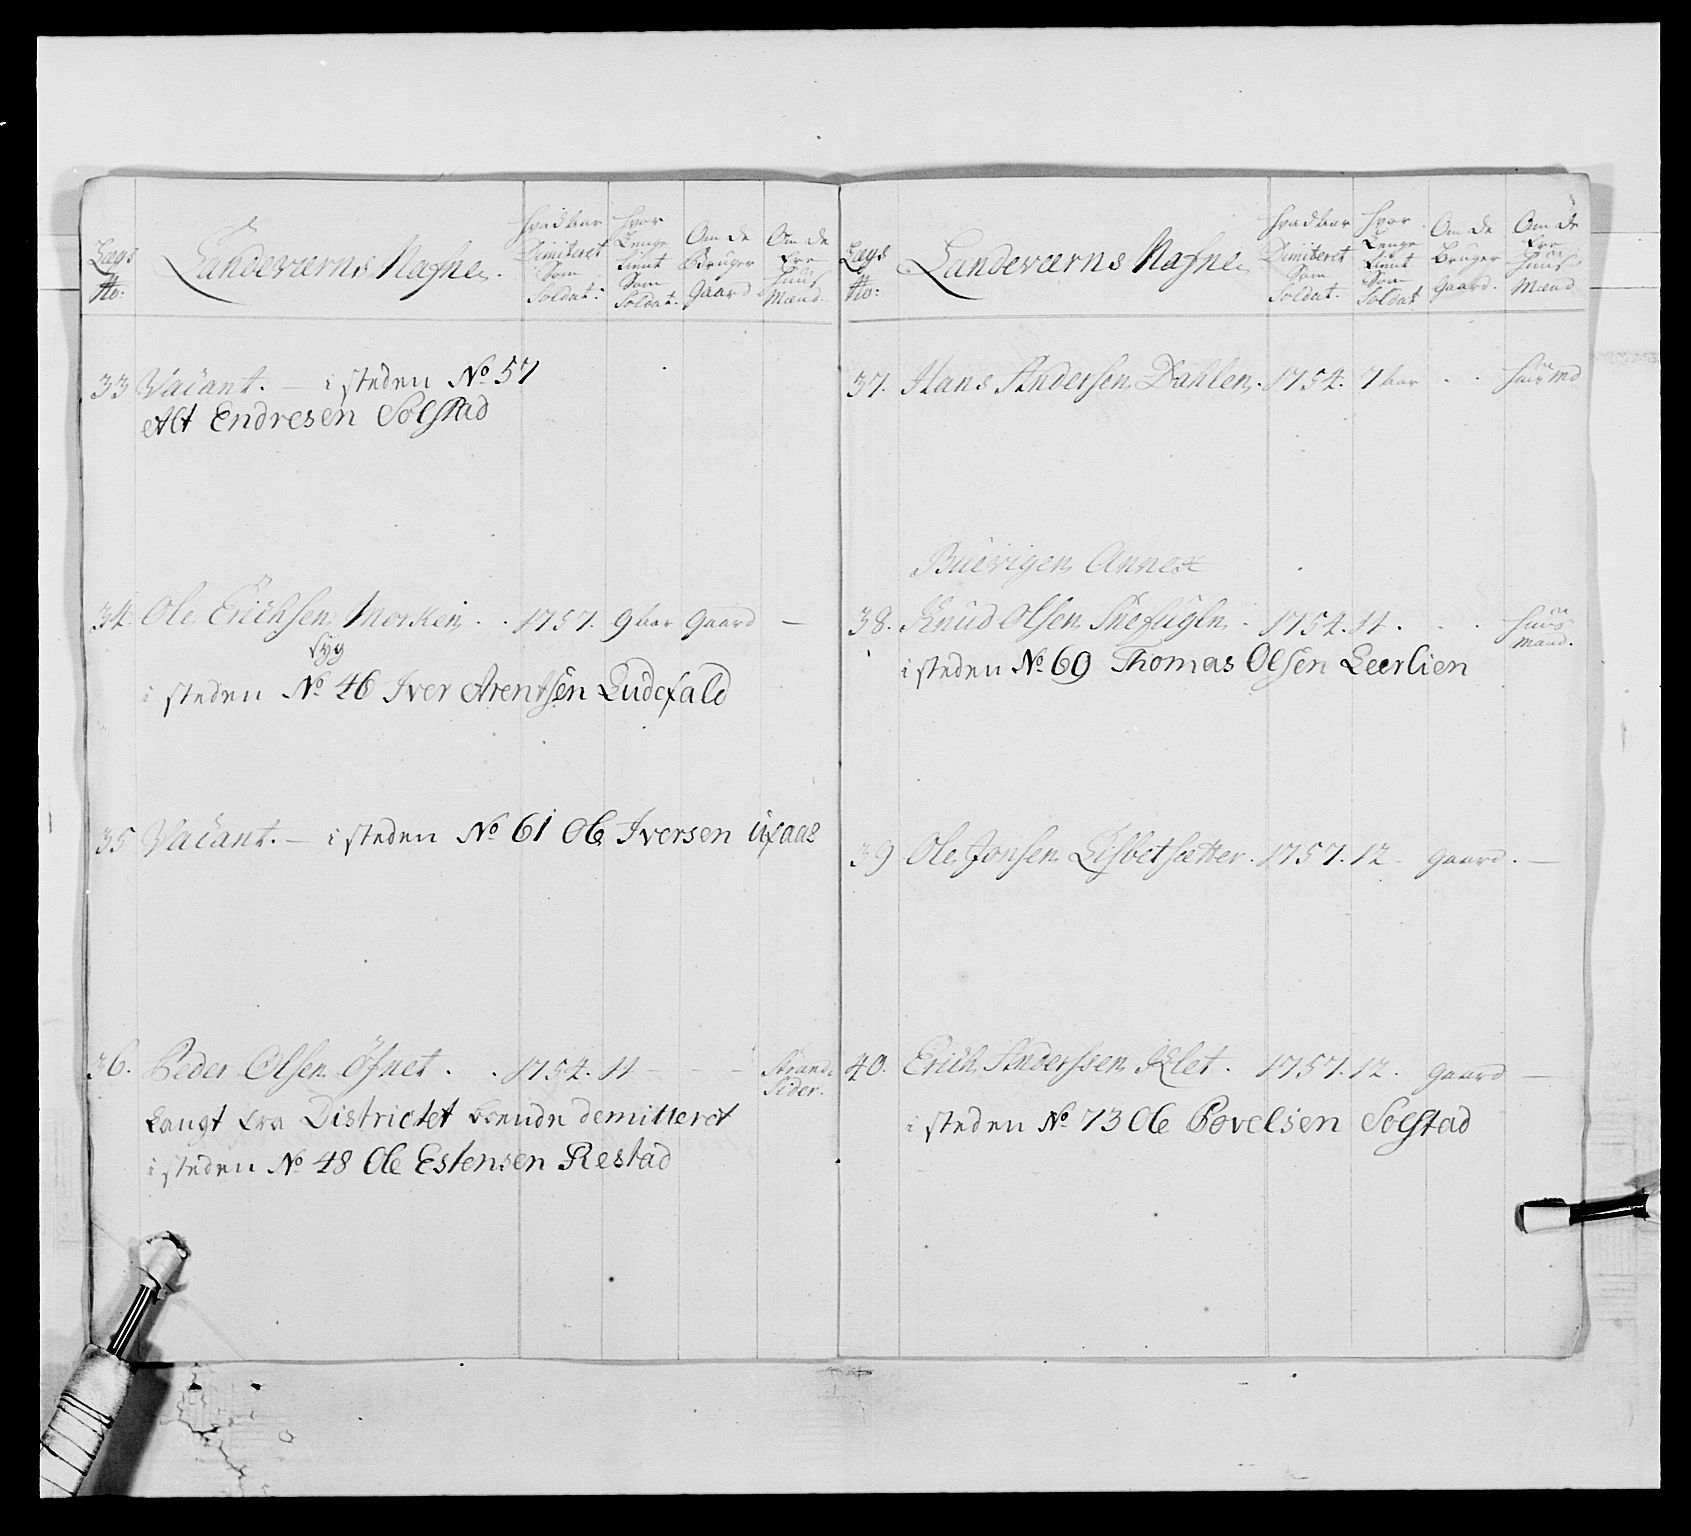 Lægs No:
Landeværns Nafne.
Hvad Aar Dimitteret Som Soldat.
Hvor Lenge Tient Som Soldat.
Om de Bruger Gaard
Om de Ere Huus Mænd.
33 Vacant. — i steden No 57
Alt Endresen Solstad
34. Ole Erichsen Morken . . 1757. 9 Aar Gaard —
syg
i steden No 46 Iver Arentsen
35 Vacant. — i steden No 61 Ole Iversen
36. Peder Olsen Ösnet . . 1754. 11 — — — Strand Sider.
Langt fra Districtet boende demitteret
i steden No 48 Ole Estensen Restad
Lægs No:
Landeværns Nafne
Hvad Aar Dimitteret Som Soldat.
Hvor Lenge Tient Som Soldat
Om de Bruger Gaard.
Om de Ere Huus Mænd
37. Hans Andersen Dahlen. 1754. 7 Aar . . Huusmd
Buevigen Annex
38. Knud Olsen . 1754. 11 . . . Huus Mand.
i steden No 69 Thomas Olsen Leerlien
39 Ole Jonsen Lisbetsætter. 1757. 12 - Gaard. —
40. Erich Anderssen Klet. 1757. 12. Gaard —
i steden No 73 Ole Povelsen Solstad